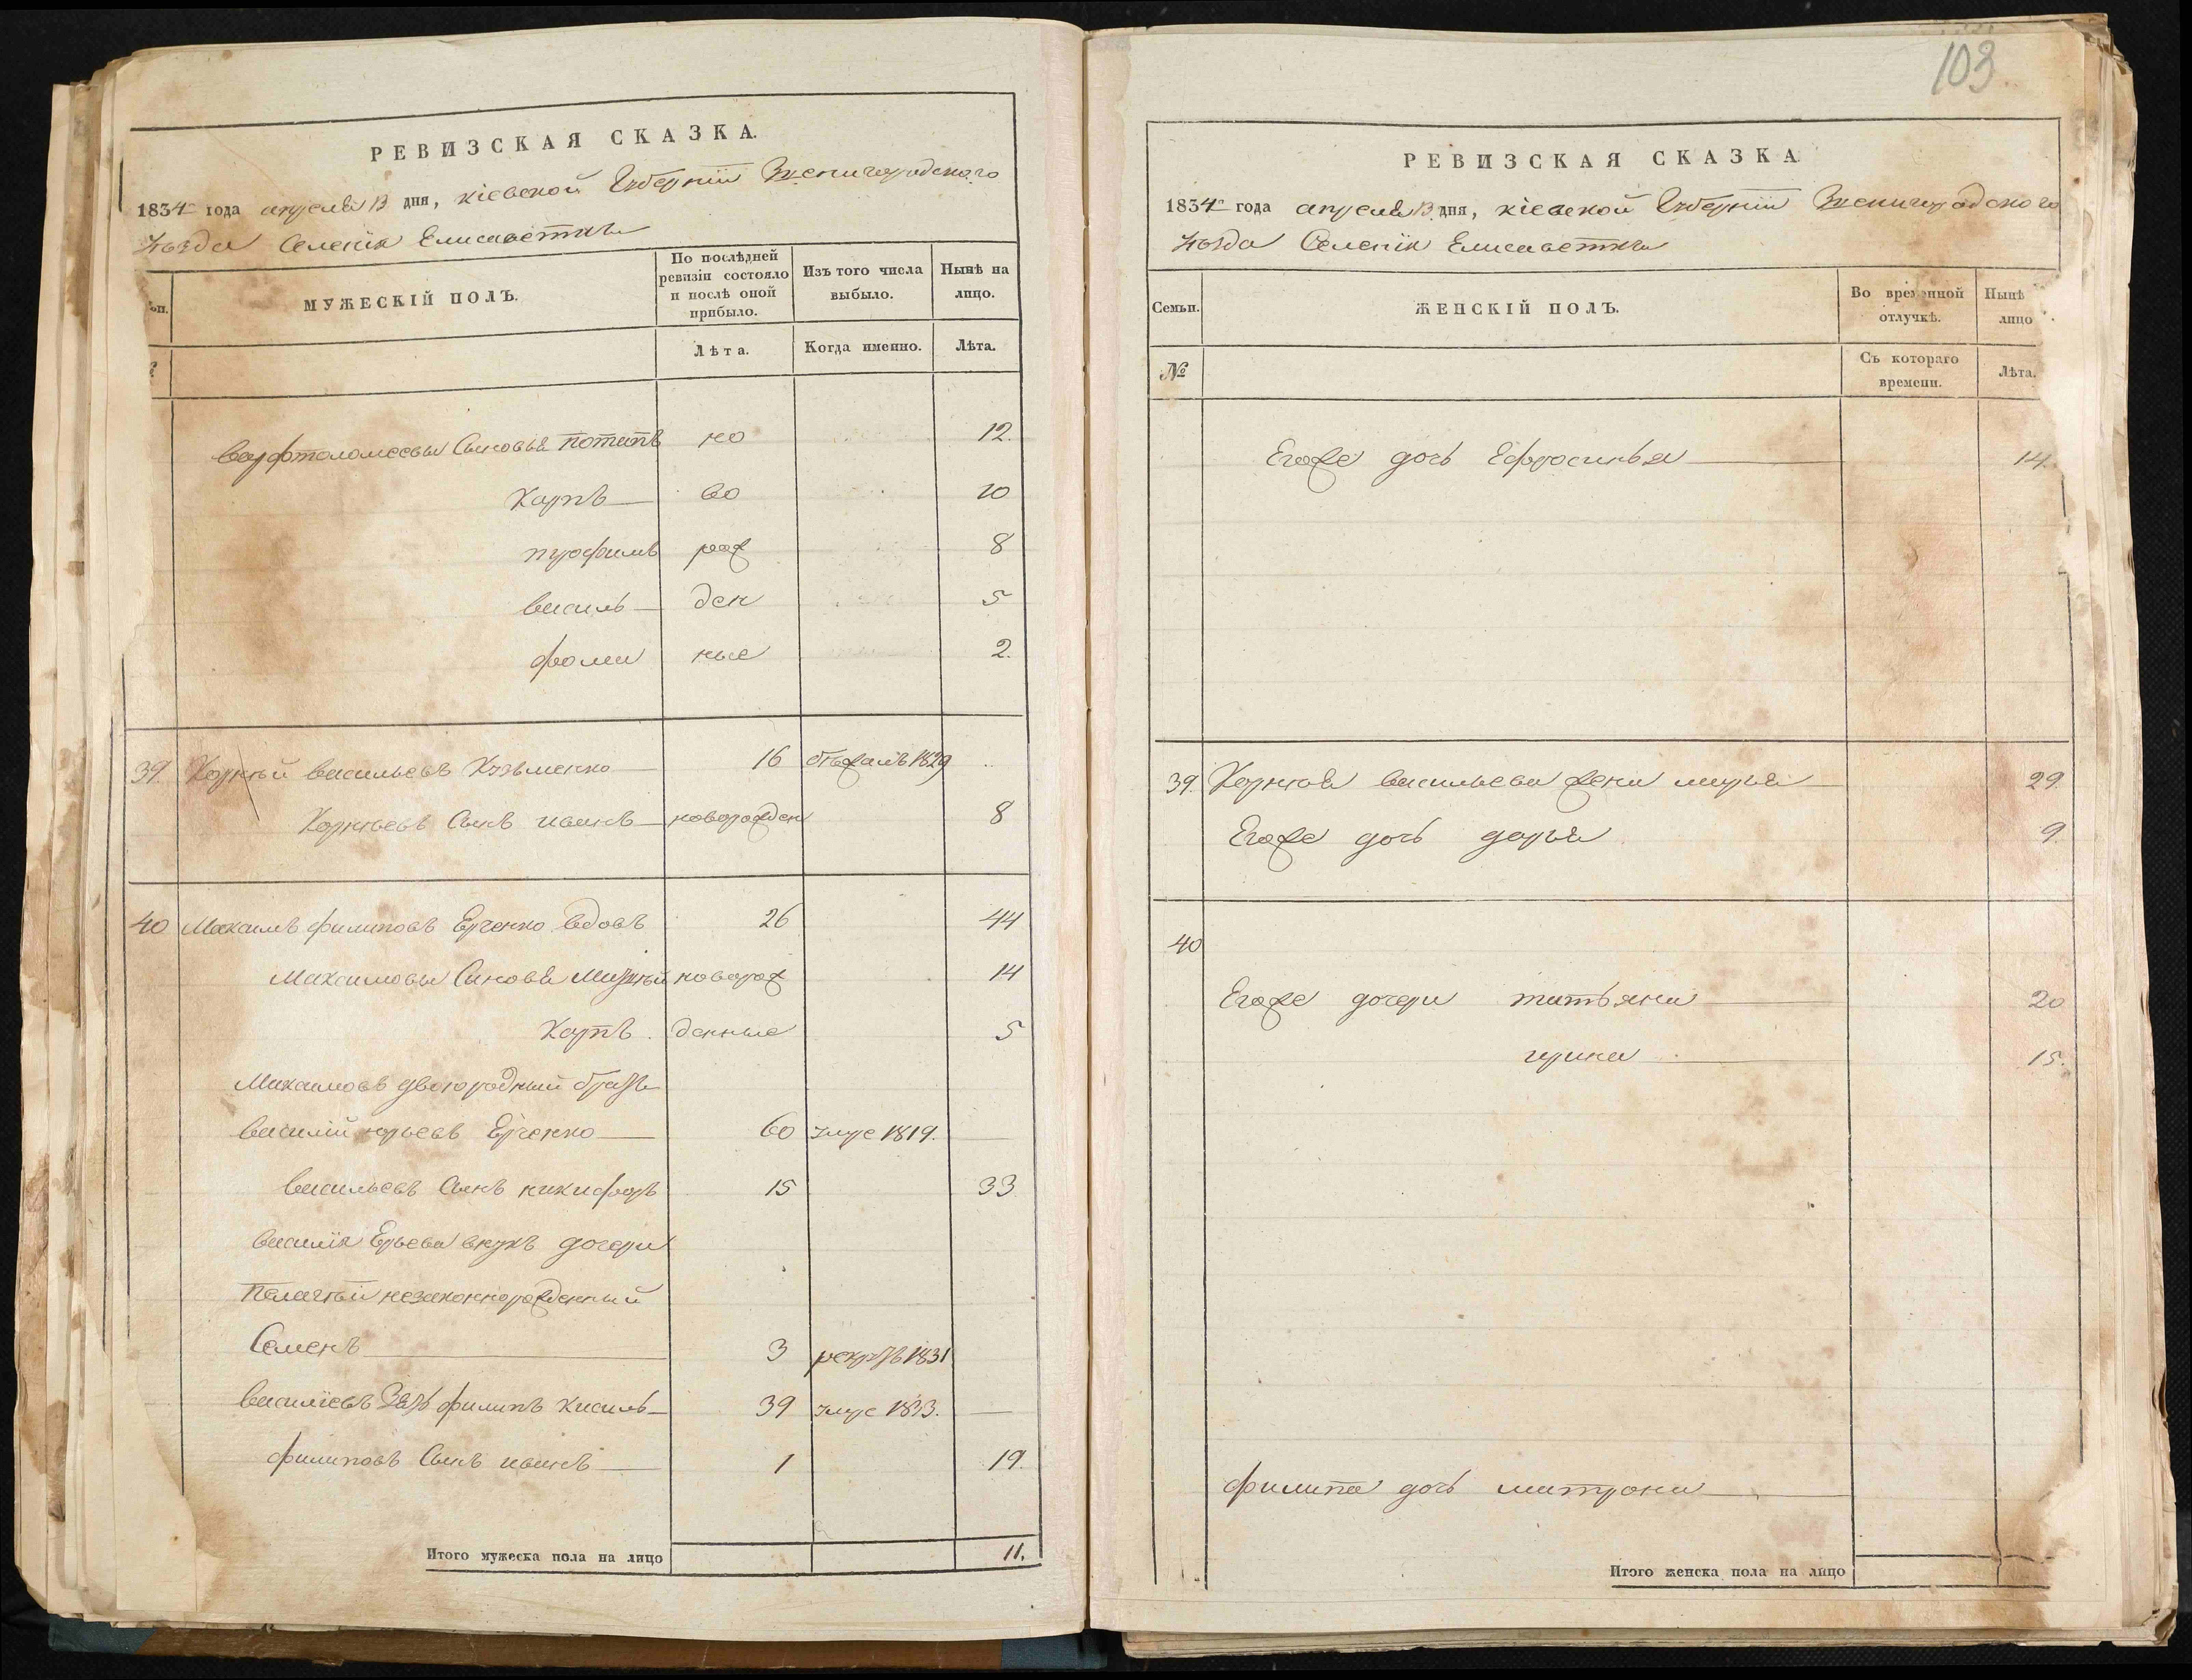 РЕВИЗСКАЯ СКАЗКА.
1834го года апреля 13 дня, кіевской Губерніи Звенигородского
уѣзда Селенія Елисаветки
МУЖЕСКІЙ ПОЛЪ.
По послѣдней ревизіи состояло и послѣ оной прибыло.
Изъ того числа выбыло.
Нынѣ на лицо.
Лѣта.
Когда именно.
Лѣта.
Варфтоломеевы Сыновья потапъ но 12.
Карпъ во 10
трофимъ рож 8
василь ден 5
фома ные 2.
39. Корнѣй васильевъ Козьменко 16 бѣжалъ 1829
Корнѣевъ Сынъ иванъ новорожден 8
40 Максимъ филиповъ Ерченко вдовъ 26 44
Максимовы Сыновя Мирнѣй новорож 14
Карпъ. денные 5
Максимовъ двоюродный братъ
василій юрьевъ Ерченко 60 умре 1819.
васильевъ Сынъ никифоръ 15 33
василія Ерьева внукъ дочери
Пелагѣи незаконнорожденный
Семенъ 3 рекрутъ 1831
василіевъ Зять филипъ кисиль 39 умре 1833.
филиповъ Сынъ иванъ 1 19.
Итого мужеска пола на лицо 11.
103
РЕВИЗСКАЯ СКАЗКА
1834го года апреля 13 дня, кіевской Губерніи Звенигородского
уѣзда Селенія Елисаветки
Семьи.
ЖЕНСКІЙ ПОЛЪ.
Во временной отлучкѣ.
Нынѣ
лицо
№
Съ котораго времени.
Лѣта.
Егоже дочь Ефросинья 14.
39. Корнѣя васильева жена марья 29.
Егоже дочь дарья 9.
40
Егоже дочери татьяна 20
ирина 15.
филипа дочь матрона
Итого женска пола на лицо